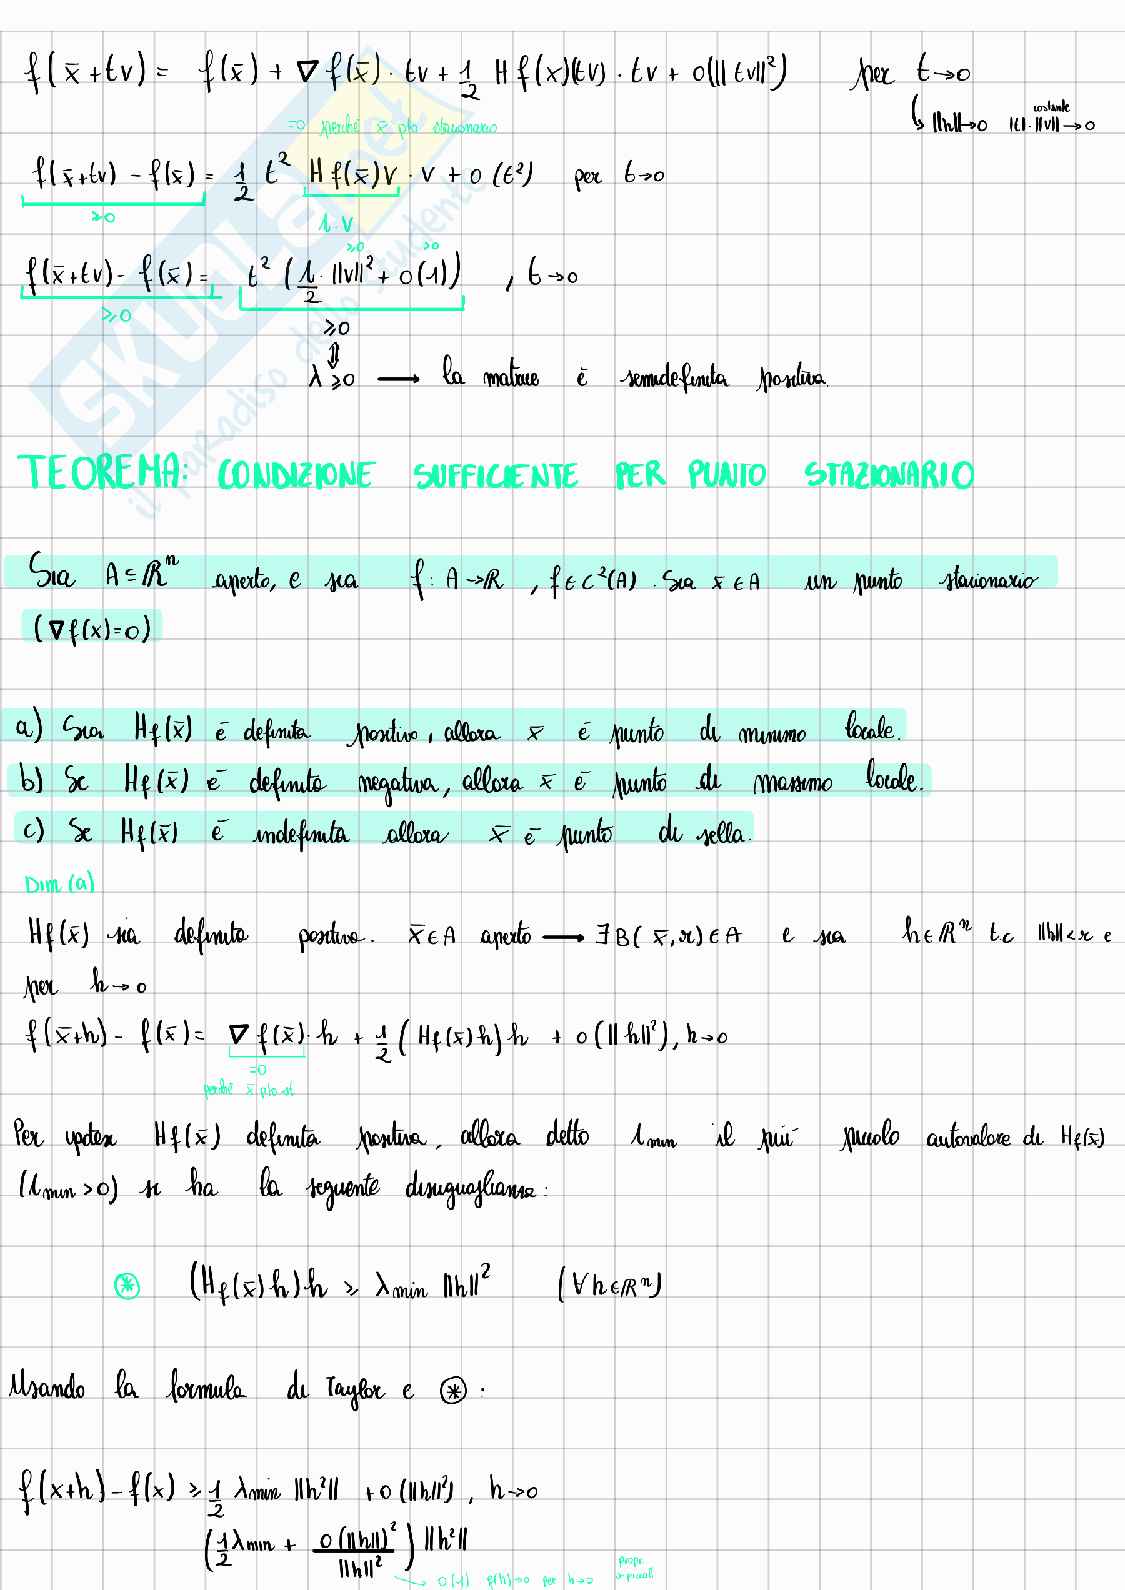 f(x̄+tv) = f(x̄) + ∇f(x̄)·tv + 1/2 Hf(x)(tv)·tv + o(||tv||²) per t→0
=0 perché x̄ pto stazionario
↳ ||h||→0 |t|·||v||→0
costante
f(x̄+tv) - f(x̄) = 1/2 t² Hf(x̄)v · v + o(t²) per t→0
≥0
λ·v
≥0 ≥0
f(x̄+tv) - f(x̄) = t² (λ/2 · ||v||² + o(1)) , t→0
≥0
≥0
⇕
λ≥0 → la matrice è semidefinita positiva.
SKUOLA.net
il paradiso dello studente
TEOREMA: CONDIZIONE SUFFICIENTE PER PUNTO STAZIONARIO
Sia A⊆ℝⁿ aperto, e sia f: A→ℝ , f∈C²(A). Sia x̄∈A un punto stazionario
(∇f(x)=0)
a) Sia Hf(x̄) è definita positiva, allora x̄ è punto di minimo locale.
b) Se Hf(x̄) è definita negativa, allora x̄ è punto di massimo locale.
c) Se Hf(x̄) è indefinita allora x̄ è punto di sella.
Dim (a)
Hf(x̄) sia definita positiva. x̄∈A aperto → ∃B(x̄,r)∈A e sia h∈ℝⁿ tc ||h||<r e
per h→0
f(x̄+h) - f(x̄) = ∇f(x̄)·h + 1/2 (Hf(x̄)h)h + o(||h||²), h→0
=0
perché x̄ pto st
Per ipotesi Hf(x̄) definita positiva, allora detto λmin il più piccolo autovalore di Hf(x̄)
(λmin>0) si ha la seguente disuguaglianza:
⊛ (Hf(x̄)h)h ≥ λmin ||h||² (∀h∈ℝⁿ)
Usando la formula di Taylor e ⊛.
f(x+h) - f(x) ≥ 1/2 λmin ||h²|| + o(||h||²), h→0
(1/2 λmin + o(||h||)²/||h||²) ||h²||
→ o(1) p(h)→0 per h→0